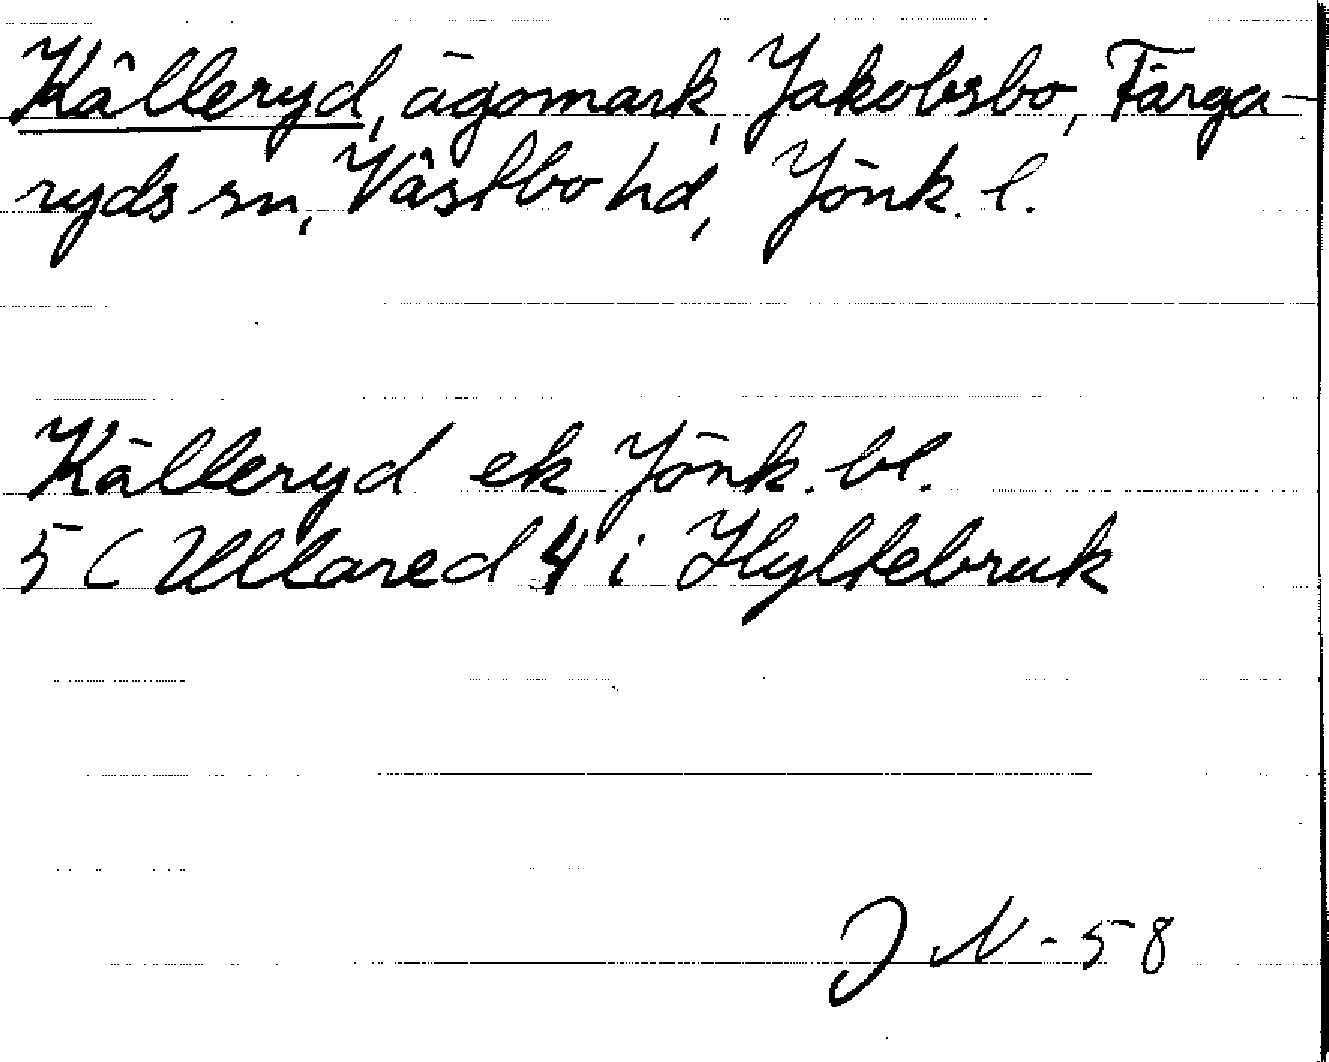 Källeryd, ägomark, Jakobsbo, Färga-
ryds sn, Västbo hd, Jönk. l.
Källeryd ek Jönk. bl.
5 (Ullared 4 i Hyltebruk
JN-58